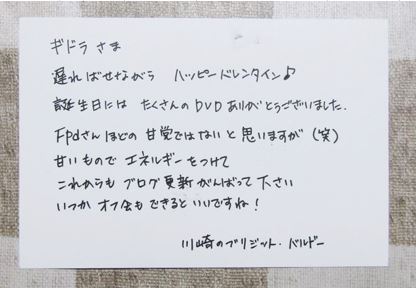 ギドラ さま
遅ればせながら ハッピーバレンタイン♪
誕生日には たくさんのDVDありがとうございました.
Fpdさんほどの 甘党ではないと思いますが (笑)
甘いもので エネルギーをつけて
これからも ブログ更新がんばって下さい
いつか オフ会も できるといいですね!
川崎のブリジット・バルドー